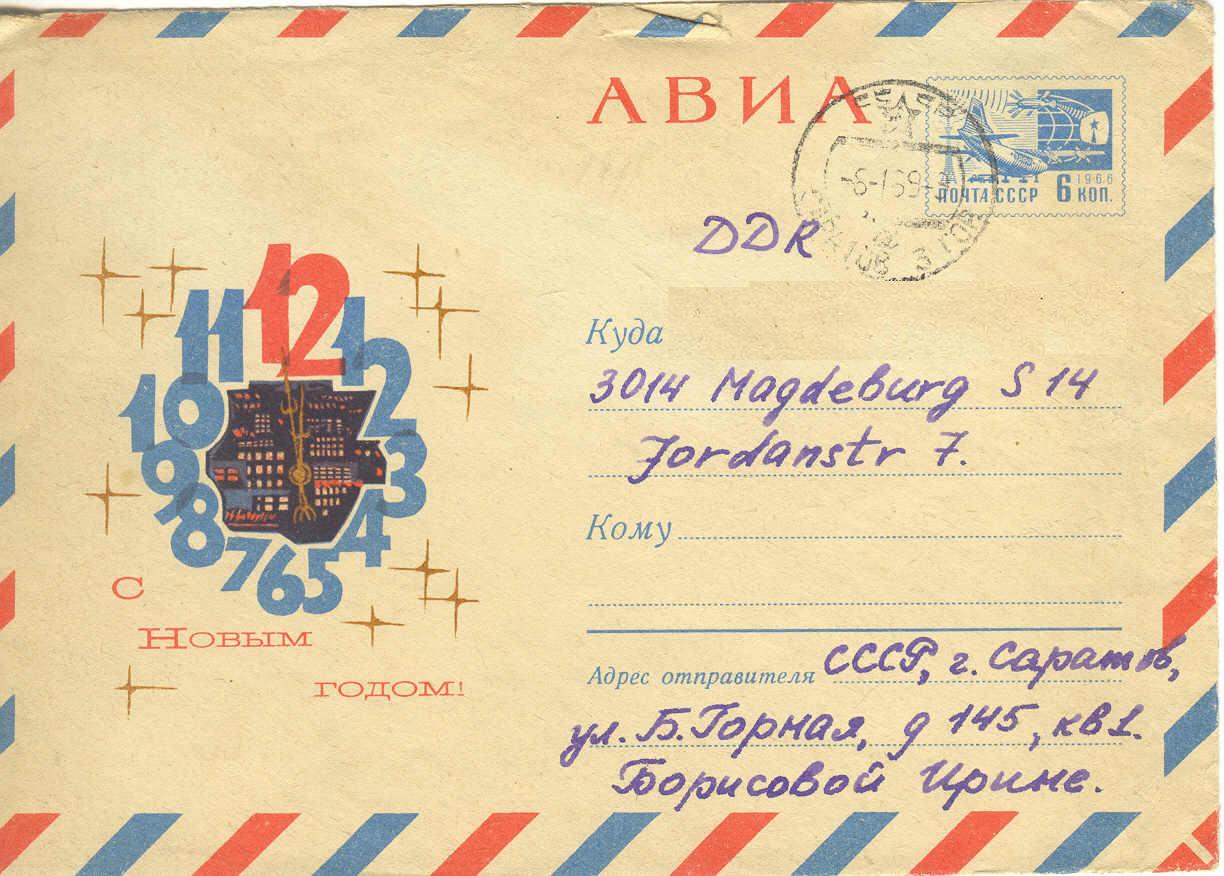 АВИА
1966
ПОЧТА СССР 6 КОП.
САРАТОВ
DDR
Куда
3014 Magdeburg S 14
Jordanstr 7.
Кому
11 12 1
10 2
9 3
8 4
7 6 5
С
Новым
годом!
Адрес отправителя СССР, г. Саратов,
ул. Б. Горная, д 145, кв 1.
Борисовой Ирине.